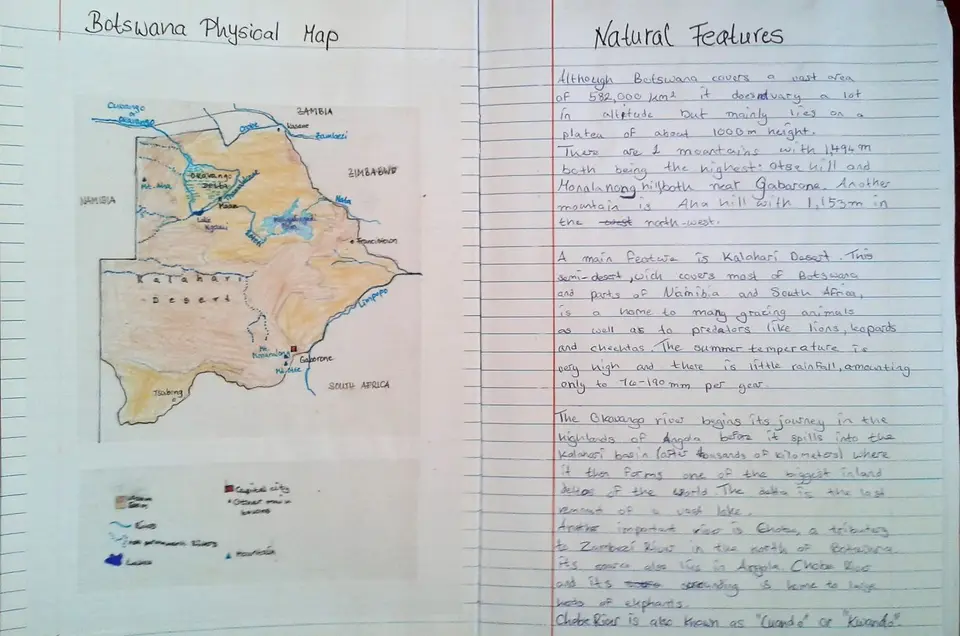 Botswana Physical Map
Cubango
or
Okavango
ZAMBIA
Kasane
Zambezi
Mt. Aha
Okavango
Delta
ZIMBABWE
NAMIBIA
Maun
Nata
Lake
Ngami
Francistown
Kalahari
Desert
Limpopo
Mt.
Gaborone
Mt. Otse
SOUTH AFRICA
Tsabong
Capital city
Other main
towns
Rivers
non permanent Rivers
Lakes
Mountain
Natural Features
Although Botswana covers a vast area
of 582,000 km² it doesn't vary a lot
in altiptude but mainly lies on a
platea of about 1000m height.
There are 2 mountains with 1,494m
both being the highest: Otse hill and
Monalanong hill both near Gabarone. Another
mountain is Aha hill with 1,153m in
the west north-west.
A main feature is Kalahari Desert. This
semi-desert, wich covers most of Botswana
and parts of Namibia and South Africa,
is a home to many gracing animals
as well as to predators like lions, leopards
and cheehtas. The summer temperature is
very high and there is little rainfall, amounting
only to 76-190 mm per year.
The Okavango river begins its journey in the
highlands of Angola before it spills into the
Kalahari basin (after thousands of kilometers) where
it then forms one of the biggest inland
deltas of the world. The delta is the last
remnant of a vast lake.
Another important river is Chobe, a tributary
to Zambezi River in the north of Botswana
its source also lies in Angola. Chobe River
and its surrounding is home to large
herds of elephants.
Chobe River is also known as "Cuando" or "Kwando".